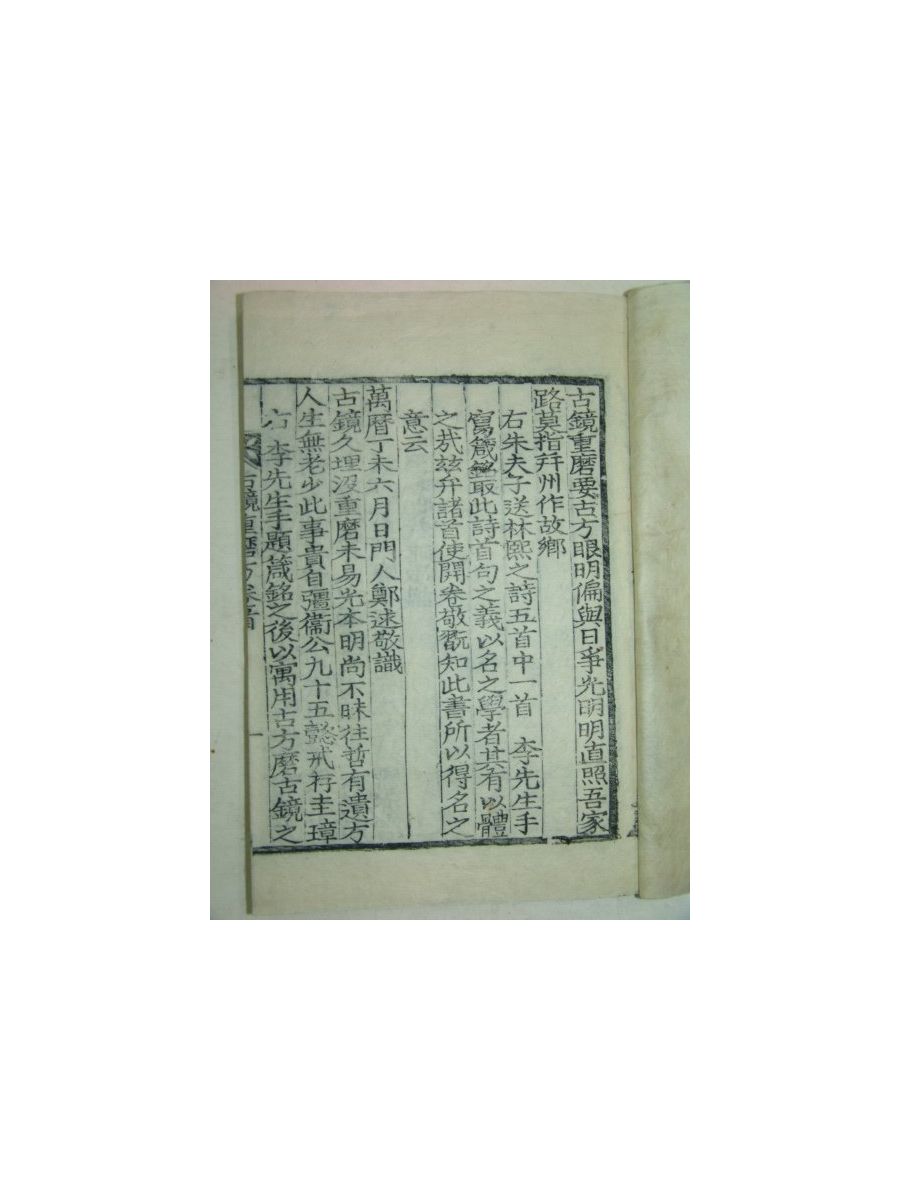 古鏡重磨要古方眼明偏與日爭光明明直照吾家
路莫指幷州作故鄉
右朱夫子送林熙之詩五首中一首 李先生手
寫箴銘取此詩首句之義以名之學者其有以體
之㦲玆弁諸首使開卷敬翫知此書所以得名之
意云
萬曆丁未六月日門人鄭逑敬識
古鏡久埋沒重磨未易光本明尙不昧往哲有遺方
人生無老少此事貴自彊衞公九十五懿戒存圭璋
右 李先生手題箴銘之後以寓用古方磨古鏡之
古鏡重磨方